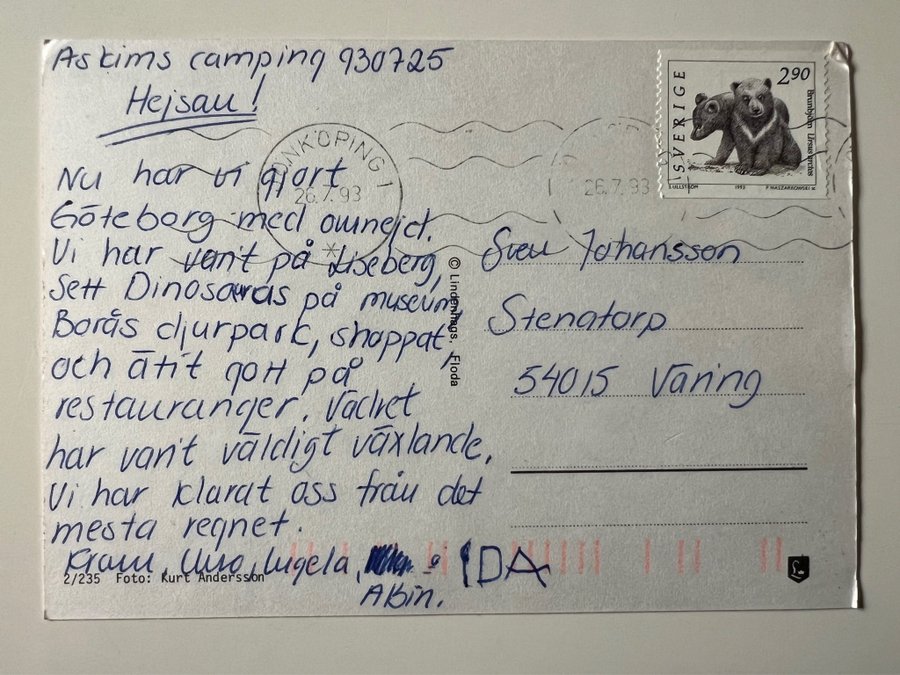 Askims camping 930725
Hejsan!
Nu har vi gjort
Göteborg med omnejd.
Vi har vari't på Liseberg,
Sett Dinosauras på museum,
Borås djurpark, shoppat,
och ätit gott på
restauranger. Vädret
har vari't väldigt växlande,
Vi har klarat oss från det
mesta regnet.
Kram, Uno, Ingela, o IDA
Albin.
2/235 Foto: Kurt Andersson
© Lindenhags, Floda
JÖNKÖPING 1
26.7.93
26.7.93
SVERIGE
2 90
Brunbjörn Ursus arctos
L ULLSTRÖM 1993 P. NASZARKOWSKI sc
Sven Johansson
Stenatorp
54015 Väring